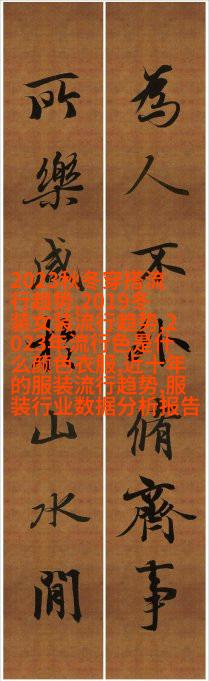 為人不外脩齊事
所樂咸山水間
2023秋冬穿搭流
行趋势,2019冬
装女装流行趋势,2
023年流行色是什
么颜色衣服,近十年
的服装流行趋势,服
装行业数据分析报告